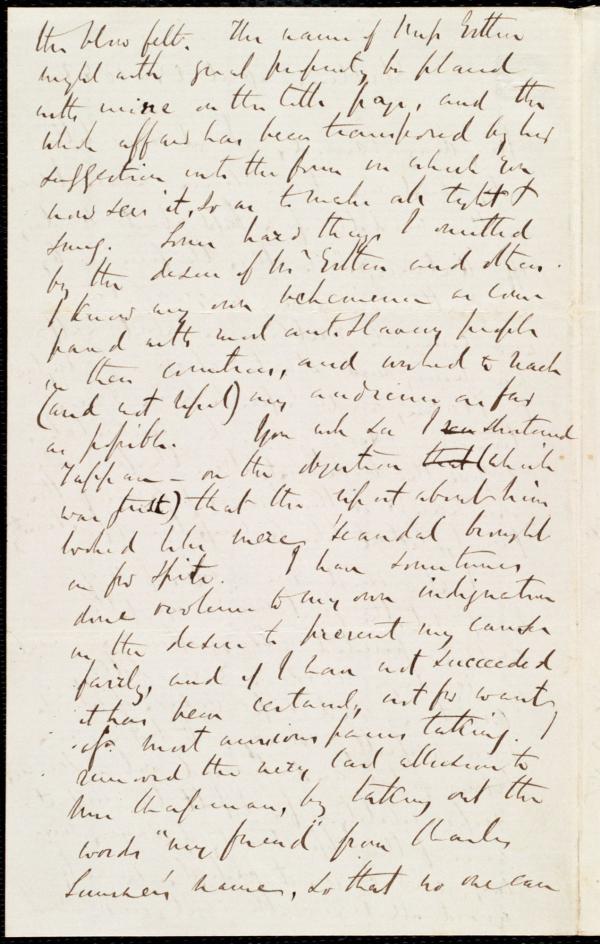 the blow felt. The name of Miss Estlin
might with great propriety be placed
with mine on the title page, and the
whole affair has been transposed by her
suggestion into the form in which you
now see it, so as to make all tight &
snug. Some hard things I omitted
by the desire of Mr Estlin and others.
I know my own vehemence as com
pared with most anti slavery people
in their countries, and wished to reach
(and not repel) my audience as far
as possible. You will see I shortened
Tappan - on the objection that (which
was just) that the report about him
looked like mere scandal brought
in for spite. I have sometimes
done violence to my own indignation
in the desire to present my cause
fairly, and if I have not succeeded
it has been certainly not for want
of most anxious pains taking. I
removed the very last allusion to
Mrs Chapman, by taking out the
words "my friend" from Charles
Sumner's name, so that no one can